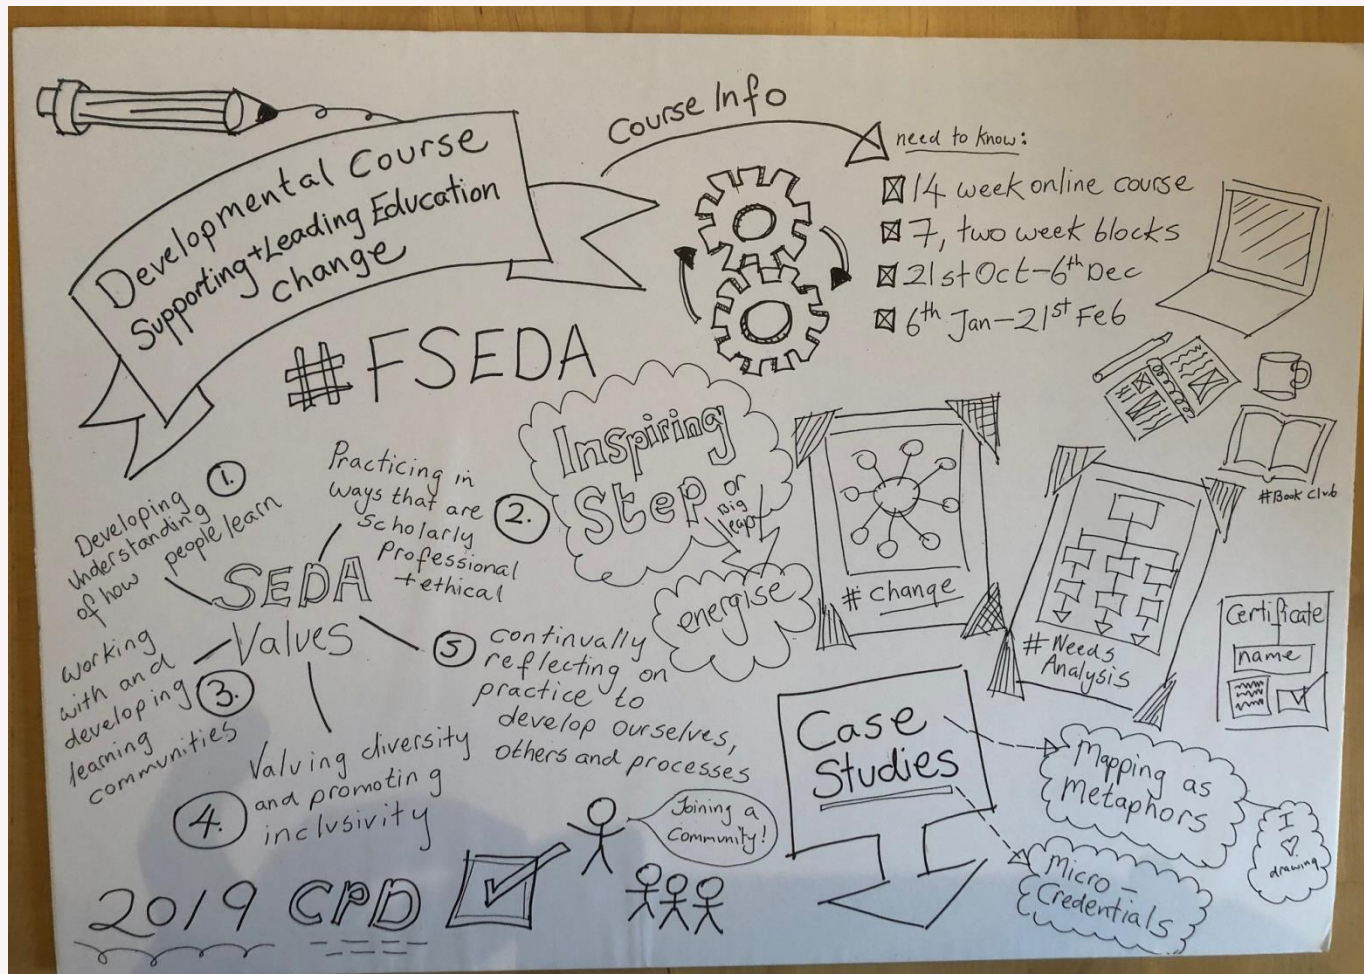 Developmental Course
Supporting + Leading Education
change
#FSEDA
Course Info
need to know:
14 week online course
7, two week blocks
21st Oct - 6th Dec
6th Jan - 21st Feb
#Book Club
Inspiring
Step
or
Big
leap
energise
# change
# Needs
Analysis
Certificate
name
SEDA
Values
1.
Developing
understanding
of how people learn
2.
Practicing in
ways that are
scholarly
professional
+ ethical
3.
working
with and
developing
learning
communities
4.
Valuing diversity
and promoting
inclusivity
5
continually
reflecting on
practice to
develop ourselves,
others and processes
Case
Studies
Mapping as
metaphors
I
♡
drawing
Micro-
Credentials
Joining a
Community!
2019 CPD